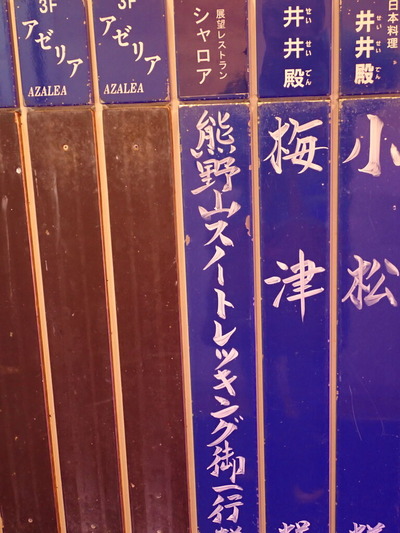 日本料理
井井殿
せいせいでん
小松
井井殿
せいせいでん
梅津
展望レストラン
シャロア
熊野山スノートレッキング御一行様
3F
アゼリア
AZALEA
3F
アゼリア
AZALEA